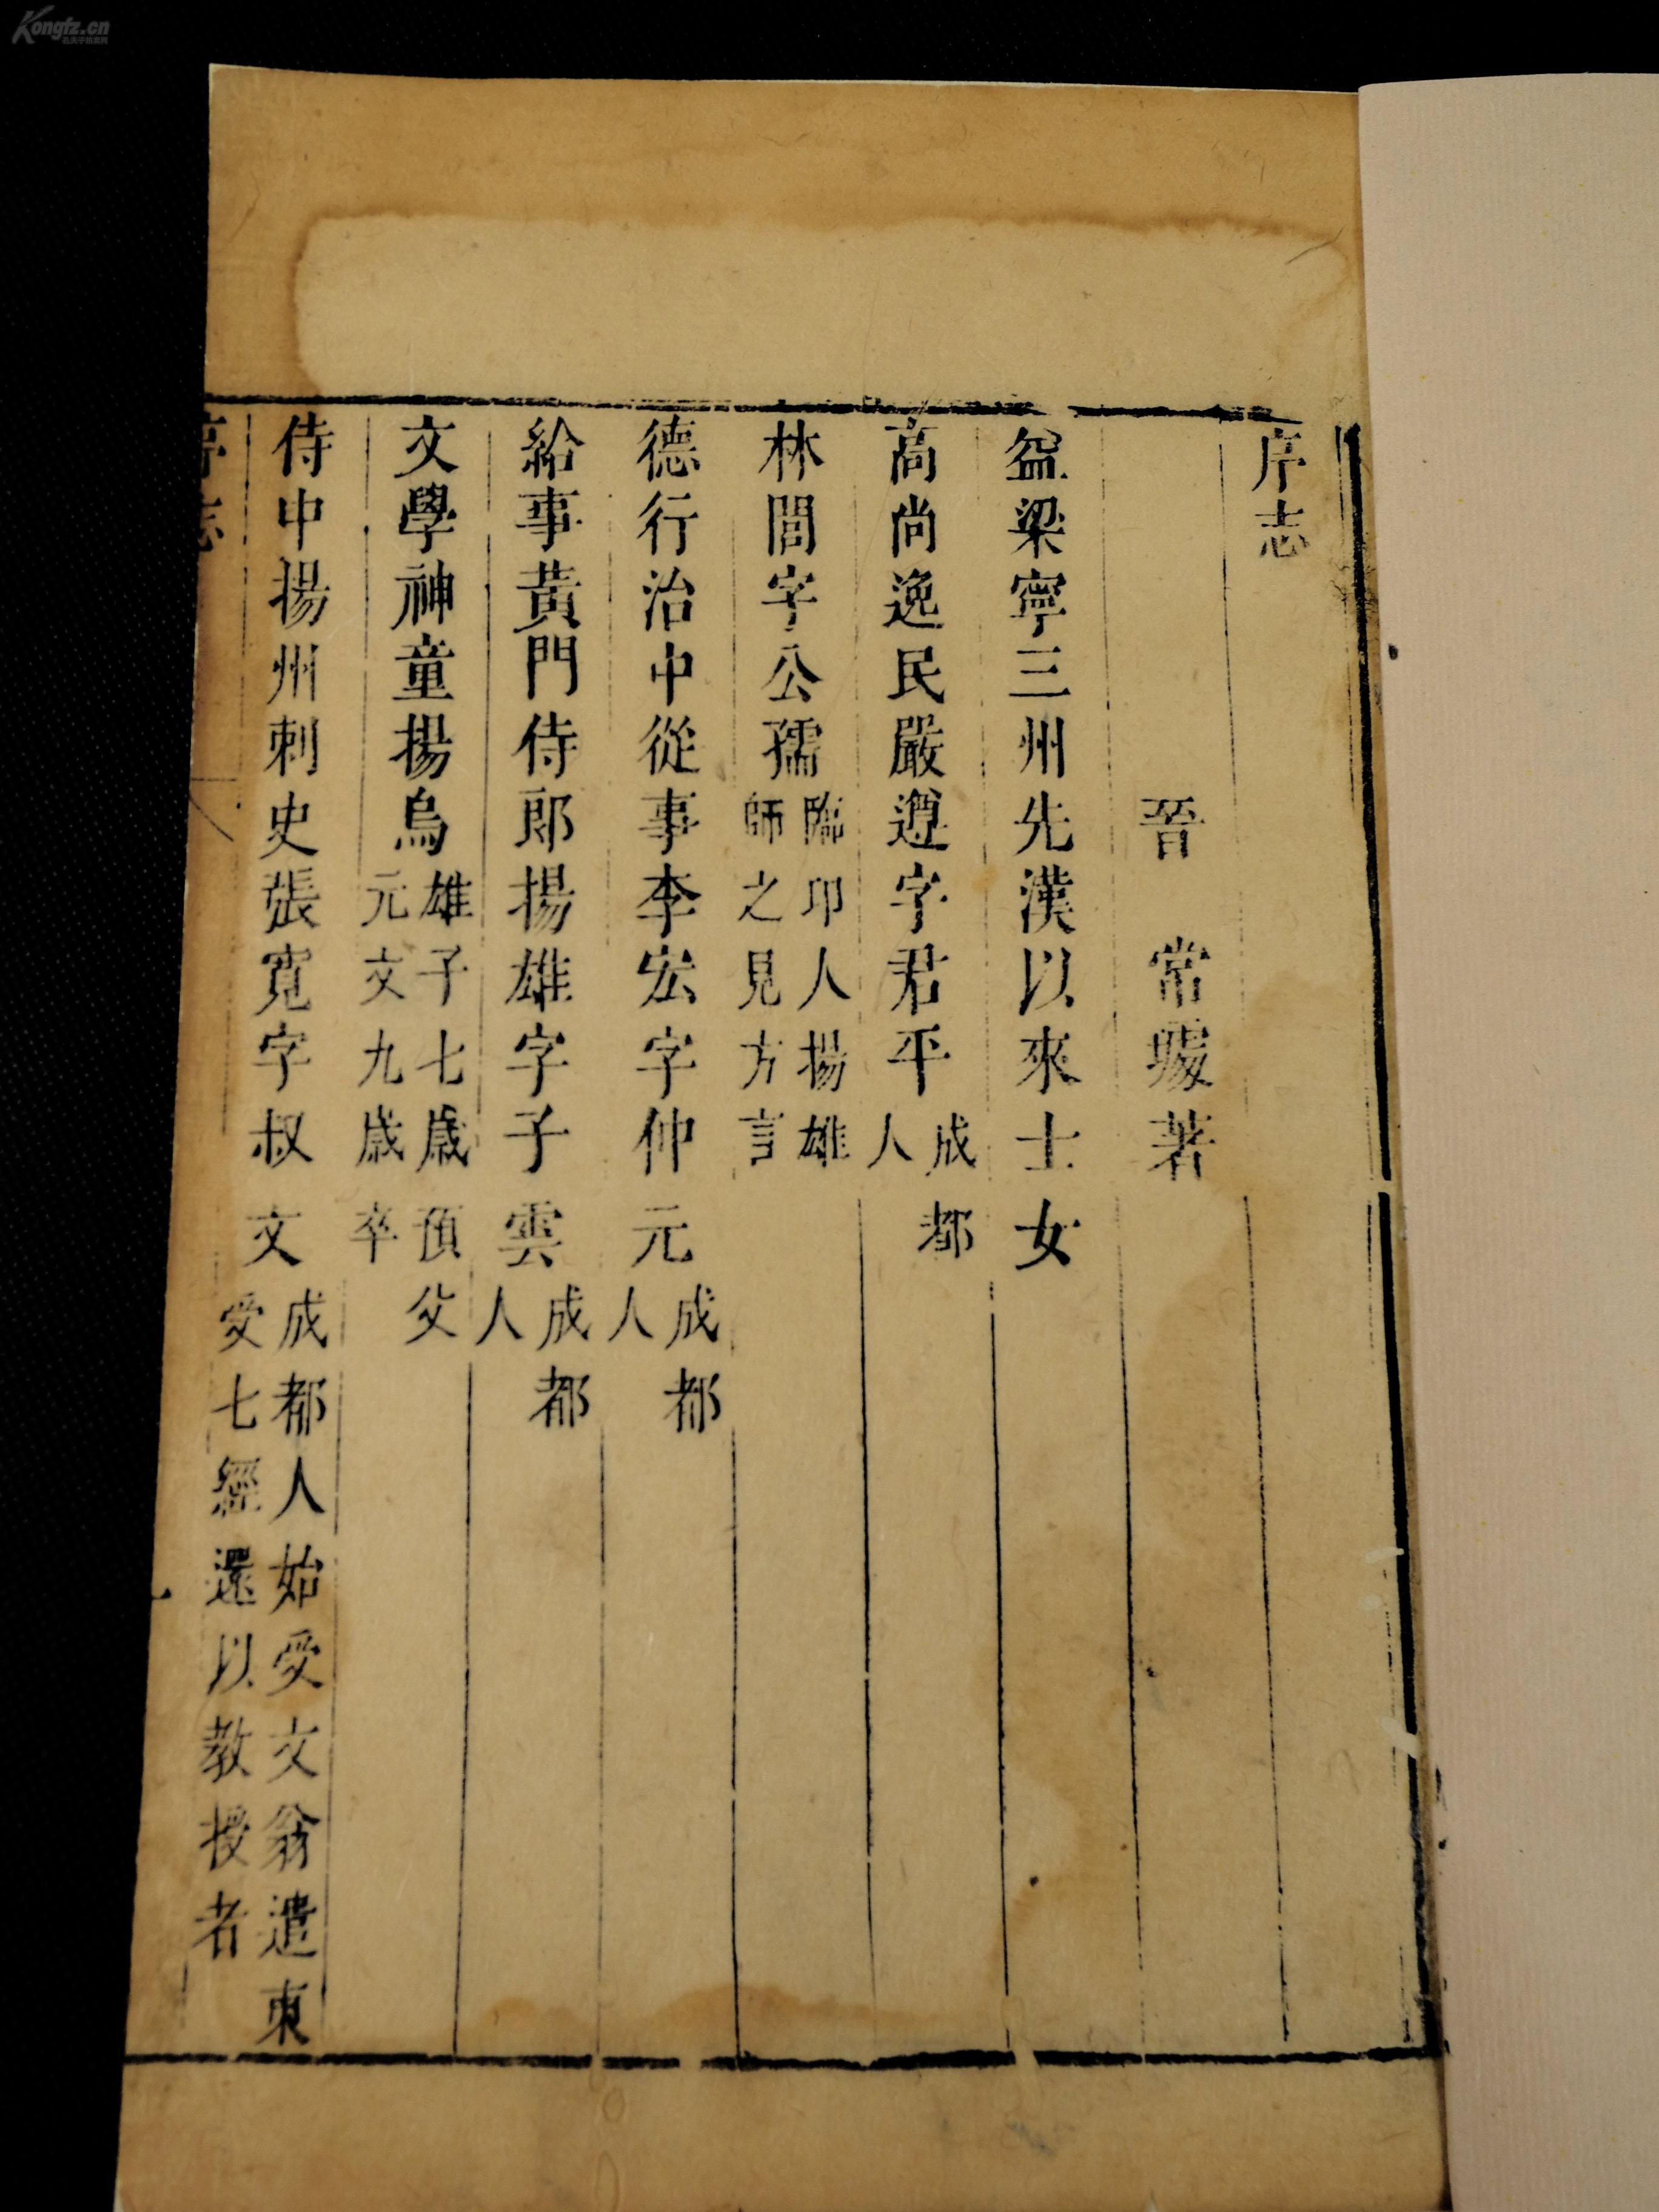 序志
晉 常璩著
益梁寧三州先漢以來士女
高尚逸民嚴遵字君平成都人
林閭字公孺臨邛人揚雄師之見方言
德行治中從事李宏字仲元成都人
給事黃門侍郎揚雄字子雲成都人
文學神童揚烏雄子七歲預父元文九歲卒
侍中揚州刺史張寬字叔文成都人始受文翁遣東受七經還以教授者
序志
Kongfz.cn